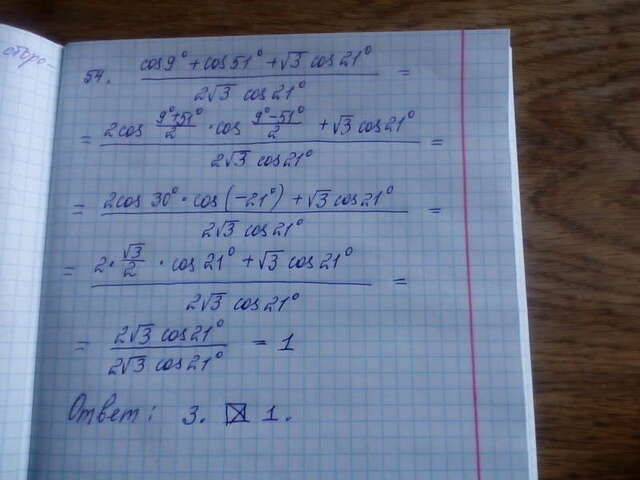 сторо-
54. (cos9° + cos51° + √3 cos21°) / (2√3 cos21°) =
= (2cos (9°+51°)/2 · cos (9°-51°)/2 + √3 cos21°) / (2√3 cos21°) =
= (2cos 30° · cos(-21°) + √3 cos21°) / (2√3 cos21°) =
= (2 · √3/2 · cos21° + √3 cos21°) / (2√3 cos21°) =
= (2√3 cos21°) / (2√3 cos21°) = 1
Ответ: 3. ☒ 1.